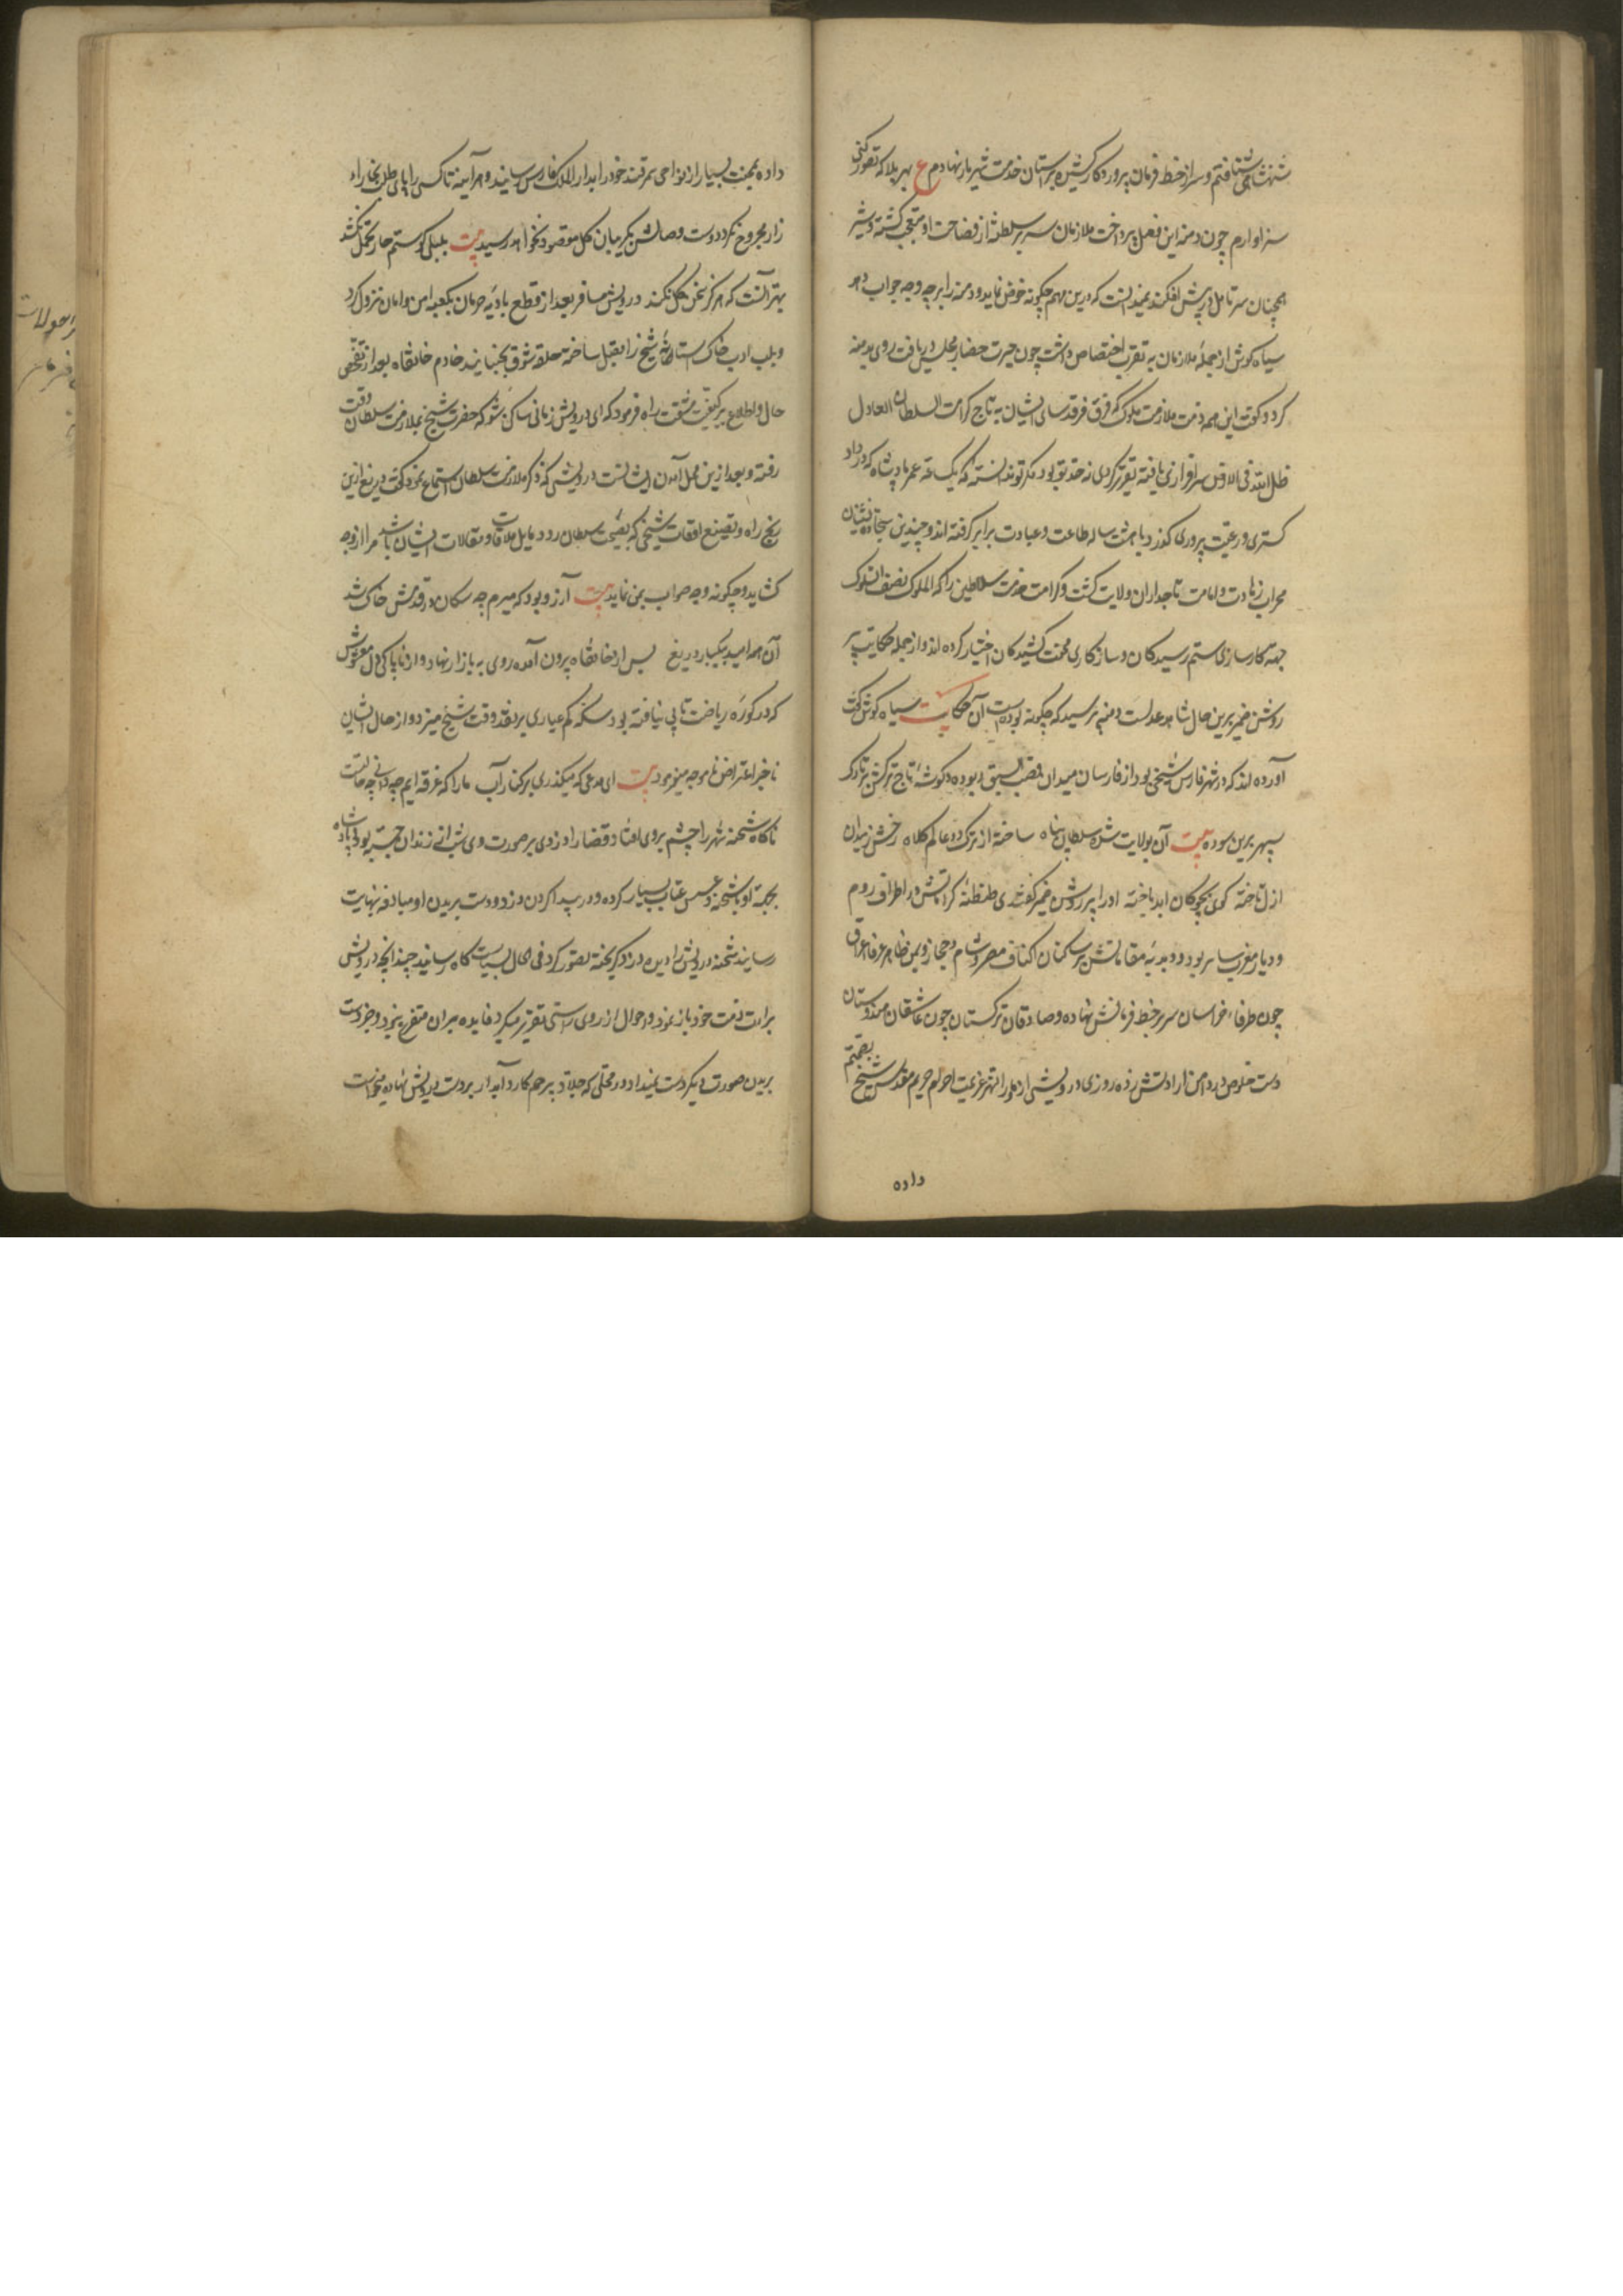 شهنشاهی شتافتم و سر از خط فرمان پروردگار کشیده بر آستان خدمت شهریار نهادم ع بهر بلا که تصور کنی
سزاوارم چون دمنه این فصل پرداخت ملازمان سریر سلطنت از فصاحت او متعجب گشته و شیر
همچنان سر تامل در پیش افکنده نمیدانست که درین مهم چگونه خوض نماید و دمنه را بر چه وجه جواب دهد
سیاه گوش از جمله ملازمان به تقرب اختصاص داشت چون حیرت حضار مجلس دریافت روی بدمنه
کرد و گفت این همه ذمت ملازمت ملوک که فرق فرقد سای ایشان به تاج کرامت السلطان العادل
ظل الله فی الارض سرافرازی یافته تقریر کردی نه حد تو بود مگر تو ندانسته که یک ساعته عمر پادشاه که در داد
گستری و رعیت پروری گذرد با شصت ساله طاعت و عبادت برابر گرفته اند و چندین سجاده نشینان
محراب زهادت و امامت تاجداران ولایت کشف و کرامت خدمت سلاطین را که الملوک نصف السلوک
جهة کارسازی ستم رسیدگان و سازگاری محنت کشیدگان اختیار کرده اند و از جمله حکایت پیر
روشن ضمیر برین حال شاهد عدلست دمنه پرسید که چگونه بوده است آن حکایت سیاه گوش گفت
آورده اند که در شهر فارس شیخی بود از فارسان میدان قصب السبق ربوده و گوشهٔ تاج ترکش بر تارک
سپهر برین سوده بیت آن بولایت شده سلطان پناه ساخته از ترک دو عالم کلاه رخش ز میدان
ازل تاخته گوی بچوگان ابد باخته او را پیر روشن ضمیر گفتندی طنطنهٔ کراماتش در اطراف روم
و دیار مغرب سایر بود و دبدبهٔ مقاماتش بر ساکنان اکناف مصر و شام و حجاز و یمن ظاهر عرفاء عراق
چون ظرفاء خراسان سر بر خط فرمانش نهاده و صادقان ترکستان چون عاشقان هندوستان
دست خلوص در دامن ارادتش زده روزی درویشی از ماوراء النهر عزیمت احرام حریم مقدس شیخ تصمیم
داده
داده بمحنت بسیار از نواحی سمرقند خود را بدار الملک فارس رسانید و هر آینه تا کسی را پای طلب بخار راه
زار مجروح نگردد دست وصالش بگریبان گل مقصود نخواهد رسید بیت بلبلی کو ستم خار تحمل نکشد
بهتر آنست که هرگز سخن گل نکند درویش مسافر بعد از قطع بادیهٔ حرمان بکعبه امن و امان نزول کرد
و بلب ادب خاک آستانهٔ شیخ را تقبیل ساخته حلقه شوق بجنبانید خادم خانقاه بعد از تفحص
حال و اطلاع بر کیفیت مشقت راه فرمود که ای درویش زمانی ساکن شو که حضرت شیخ بملازمت سلطان وقت
رفته و بعد ازین محل آمدن ایشانست درویش که ذکر ملازمت سلطان استماع نمود گفت دریغ ازین
رنج راه و تضییع اوقات شیخی که بصحبت سلطان رود و مایل ملاقات و مقالات ایشان باشد مرا از وجه
گشاید و چگونه وجه صواب بمن نماید بیت آرزو بود که میرم چه سگان در قدمش خاک شد
آن همه امید بیکبار دریغ پس از خانقاه بیرون آمده روی به بازار نهاد و از ناپاکی دل مغشوش
که در کورهٔ ریاضت تابی نیافته بود سکه کم عیاری بر نقد وقت شیخ میزد و از حال ایشان
ناخبر اعتراض نا موجه مینمود بیت ای مدعی که میگذری بر کنار آب ما را که غرقه ایم چه دانی چه حالتست
ناگاه شحنه شهر را چشم بروی افتاد قضا را دزدی بر صورت وی شب از زندان جسته بود و پادشاه
بجهة او با شحنه و عسس عتاب بسیار کرده و در پیدا کردن دزد و دست بریدن او مبالغه بنهایت
رسانید شحنه درویش را دیده دزد گریخته تصور کرد فی الحال بسیاست گاه رسانید چندانچه درویش
براءت ذمت خود باز نمود و احوال از روی راستی تقریر میکرد فایده بران متفرع نبود و جز دست
بریدن صورت دیگر دست نمیداد و در محلی که جلاد بیرحم کارد آبدار بر دست درویش نهاده میخواست